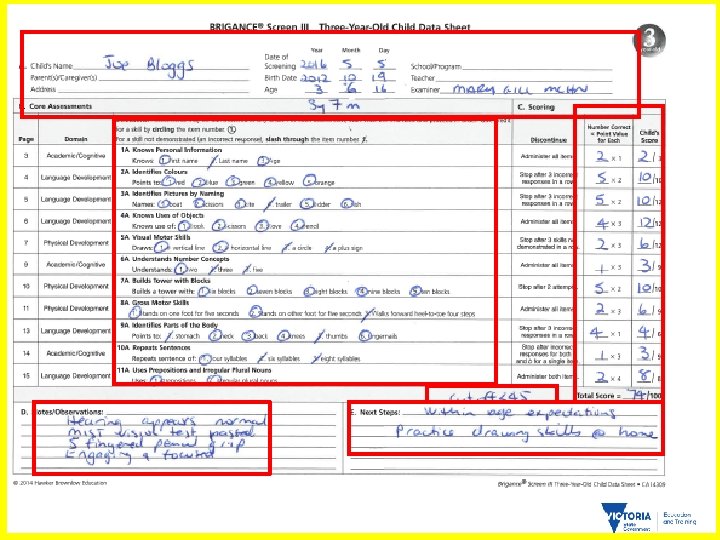 BRIGANCE® Screen III Three-Year-Old Child Data Sheet
3
Year Month Day
Child's Name Joe Bloggs Date of Screening 2016 5 5 School/Program
Parent(s)/Caregiver(s) Birth Date 2012 10 19 Teacher
Address Age 3 6 16 Examiner
3y 7m
B. Core Assessments C. Scoring
for a skill by circling the item number
Page Domain For a skill not demonstrated (an incorrect response), slash through the item number Discontinue Number Correct × Point Value for Each Child's Score
3 Academic/Cognitive 1A. Knows Personal Information Administer all items 2 × 1 2/
Knows: 1. First name 2. Last name 3. Age
4 Language Development 2A. Identifies Colours Stop after 3 incorrect responses in a row 5 × 2 10/10
Points to: 1. red 2. blue 3. green 4. yellow 5. orange
5 Language Development 3A. Identifies Pictures by Naming Stop after 3 incorrect responses in a row 5 × 2 10/12
Names: 1. boat 2. scissors 3. kite 4. trailer 5. ladder 6. fish
6 Language Development 4A. Knows Uses of Objects Administer all items 4 × 3 12/12
Knows use of: 1. book 2. scissors 3. stove 4. pencil
7 Physical Development 5A. Visual Motor Skills Stop after 3 skills not demonstrated in a row 2 × 3 6/12
Draws: 1. vertical line 2. horizontal line 3. a circle 4. a plus sign
9 Academic/Cognitive 6A. Understands Number Concepts Administer all items 1 × 3 3/9
Understands: 1. two 2. three 3. five
10 Physical Development 7A. Builds Tower with Blocks Stop after 2 attempts 5 × 2 10/10
Builds a tower with: 1. six blocks 2. seven blocks 3. eight blocks 4. nine blocks 5. ten blocks
11 Physical Development 8A. Gross Motor Skills Administer all items 2 × 3 6/9
1. Stands on one foot for five seconds 2. Stands on other foot for five seconds 3. Walks forward heel-to-toe four steps
13 Language Development 9A. Identifies Parts of the Body Stop after 3 incorrect responses in a row 4 × 1 4/6
Points to: 1. stomach 2. neck 3. back 4. knees 5. thumbs 6. fingernails
14 Academic/Cognitive 10A. Repeats Sentences Stop after incorrect responses for both and b for a single item 1 × 3 3/9
Repeats sentence of: 1. four syllables 2. six syllables 3. eight syllables
15 Language Development 11A. Uses Prepositions and Irregular Plural Nouns Administer both items 2 × 4 8/8
Uses: 1. prepositions 2. irregular plural nouns
Total Score = 74/100
D. Notes/Observations: E. Next Steps: Within age expectations
Hearing appears normal
MIST vision test passed Practice drawing skills @ home
5 fingered pencil grip
Engaging & focused
© 2014 Hawker Brownlow Education Brigance® Screen III Three-Year-Old Child Data Sheet • CA14309
VICTORIA State Government Education and Training